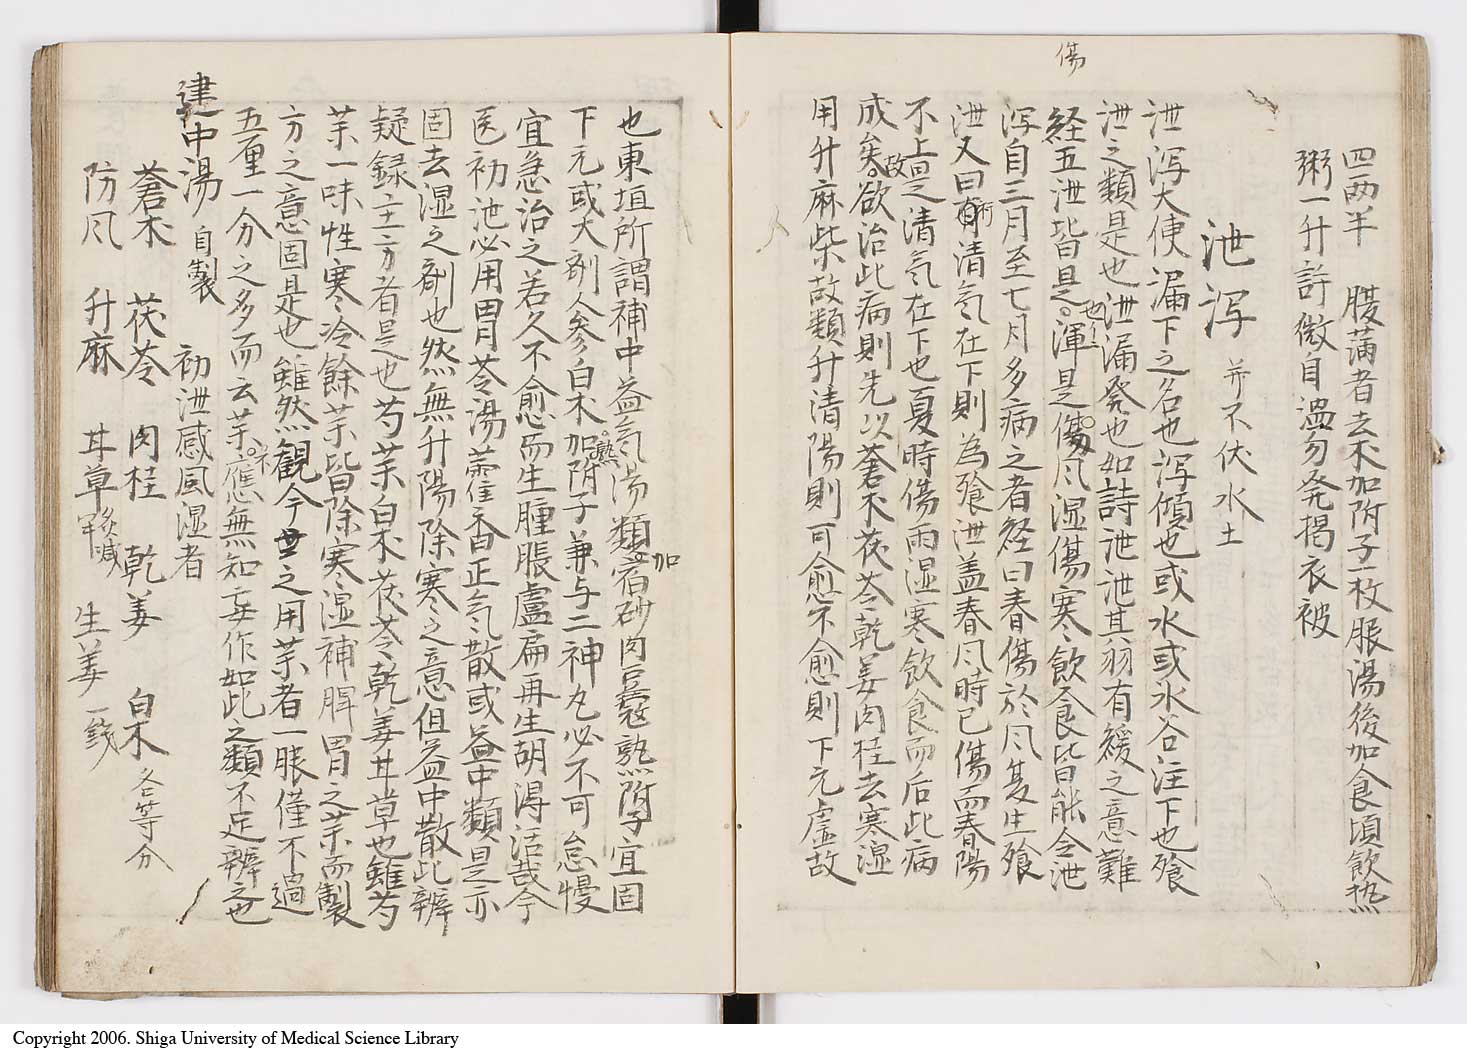 傷
四両半　腹満者去朮加附子一枚服湯後加食頃飲熱
粥一升許微自温勿発掲衣被
泄瀉 并不伏水土
泄瀉大便漏下之名也瀉傾也或水或水谷注下也飱
泄之類是也泄漏発也如詩泄泄其羽有緩之意難
経五泄皆是也渾是傷风湿傷寒飲食皆能令泄
瀉自三月至七月多病之者経曰春傷於风夏生飱
泄又曰清気在下則為飱泄盖春风時已傷而春陽
不上之清気在下也夏時傷雨湿寒飲食而后此病
成矣故欲治此病則先以蒼朮茯苓乾姜肉桂去寒湿
用升麻柴故類升清陽則可愈不愈則下元虚故
也東垣所謂補中益気湯類加宿砂肉豆蔻熟附子宜固
下元或大剤人参白朮加熟附子兼与二神丸必不可怠慢
宜急治之若久不愈而生腫脹盧扁再生胡得活哉今
医初泄必用胃苓湯藿香正気散或益中類是亦
固去湿之剤也然無升陽除寒之意但益中散此辨
疑録主方者是也芍茱白朮茯苓乾姜甘草也雖芍
茱一味性寒冷餘茱皆除寒湿補脾胃之茱而製
方之意固是也雖然観今世之用茱者一服僅不過
五厘一分之多而云茱不應無知妄作如此之類不足辨之也
建中湯 自製　初泄感風湿者
蒼朮　茯苓　肉桂　乾姜　白朮 各等分
防风　升麻　甘草 炙減半　生姜 一錢